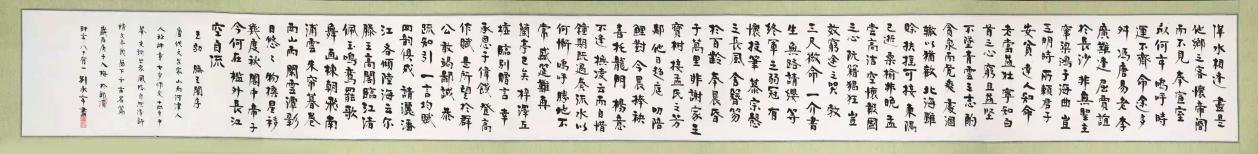 萍水相逢盡是
他鄉之客懷帝閽
而不見奉宣室
以何年嗚呼時
運不齊命途多
舛馮唐易老李
廣難封屈賈誼
於長沙非無聖主
竄梁鴻于海曲豈
乏明時所賴君子
安貧達人知命
老當益壯寧知白
首之心窮且益堅
不墜青雲之志酌
貪泉而覺爽處涸
轍以猶歡北海雖
賒扶搖可接東隅
已逝桑榆非晚孟
嘗高潔空懷報國
之心阮籍猖狂豈
效窮途之哭勃
三尺微命一介書
生無路請纓等
終軍之弱冠有
懷投筆慕宗慤
之長風舍簪笏
於百齡奉晨昏
于萬里非謝家之
寶樹接孟氏之芳
鄰他日趨庭叨陪
鯉對今晨捧袂
喜托龍門楊意
不逢撫凌雲而自惜
鍾期既遇奏流水以
何慚嗚呼勝地不
常盛筵難再
蘭亭已矣梓澤丘
墟臨別贈言幸
承恩于偉餞登高
作賦是所望於群
公敢竭鄙誠恭
疏短引一言均賦
四韻俱成請灑潘
江各傾陸海云尔
滕王高閣臨江渚
佩玉鳴鸞罷歌
舞畫棟朝飛南
浦雲朱帘暮卷
西山雨閑雲潭影
日悠悠物換星移
幾度秋閣中帝子
今何在檻外長江
空自流
王勃 滕王閣序